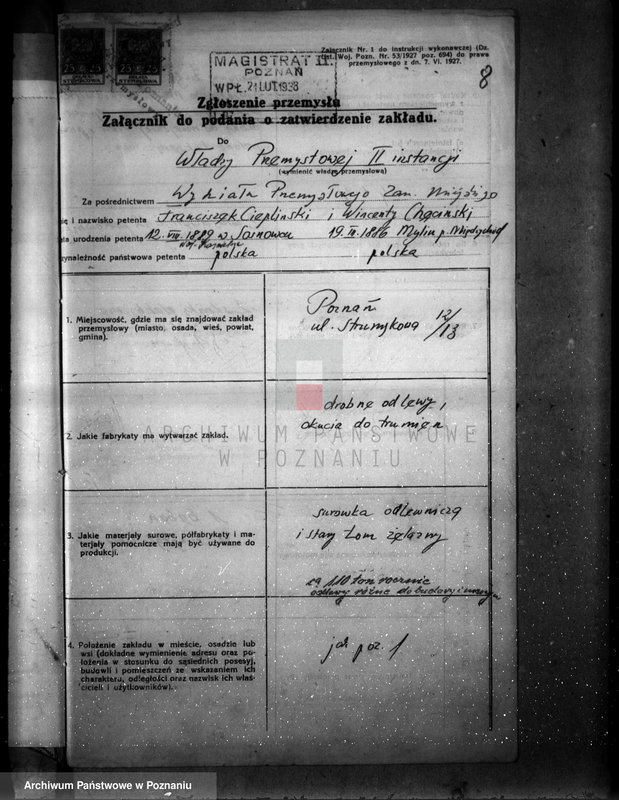 Załącznik Nr. 1 do instrukcji wykonawczej (Dz.
Urz. Woj. Pozn. Nr. 53/1927 poz. 694) do prawa
przemysłowego z dn. 7. VI. 1927.
8
MAGISTRAT II.
POZNAŃ
WPŁ. 21 LUT. 1938
Zgłoszenie przemysłu
Załącznik do podania o zatwierdzenie zakładu.
Do
Władzy Przemysłowej II instancji
(wymienić władzę przemysłową)
Za pośrednictwem Wydziału Przemysłowego Zarz. Miejskiego
ię i nazwisko petenta Franciszek Cieplinski i Wincenty Chąciński
ata urodzenia petenta 12. VIII. 1889 w 19. III. 1886 p. Międzychod
zynależność państwowa petenta polska polska
1. Miejscowość, gdzie ma się znajdować zakład
przemysłowy (miasto, osada, wieś, powiat,
gmina).
Poznań
ul. Strumykowa 12/13
2. Jakie fabrykaty ma wytwarzać zakład.
drobne odlewy,
okucia do trumien
ARCHIWUM PAŃSTWOWE
W POZNANIU
3. Jakie materjały surowe, półfabrykaty i ma-
terjały pomocnicze mają być używane do
produkcji.
surowka odlewnicza
i stary łom żelazny
ca 110 ton rocznie
odlewy różne do budowy i maszyn
4. Położenie zakładu w mieście, osadzie lub
wsi (dokładne wymienienie adresu oraz po-
łożenia w stosunku do sąsiednich posesyj,
budowli i pomieszczeń ze wskazaniem ich
charakteru, odległości oraz nazwisk ich właś-
cicieli i użytkowników).
jak poz. 1
Archiwum Państwowe w Poznaniu